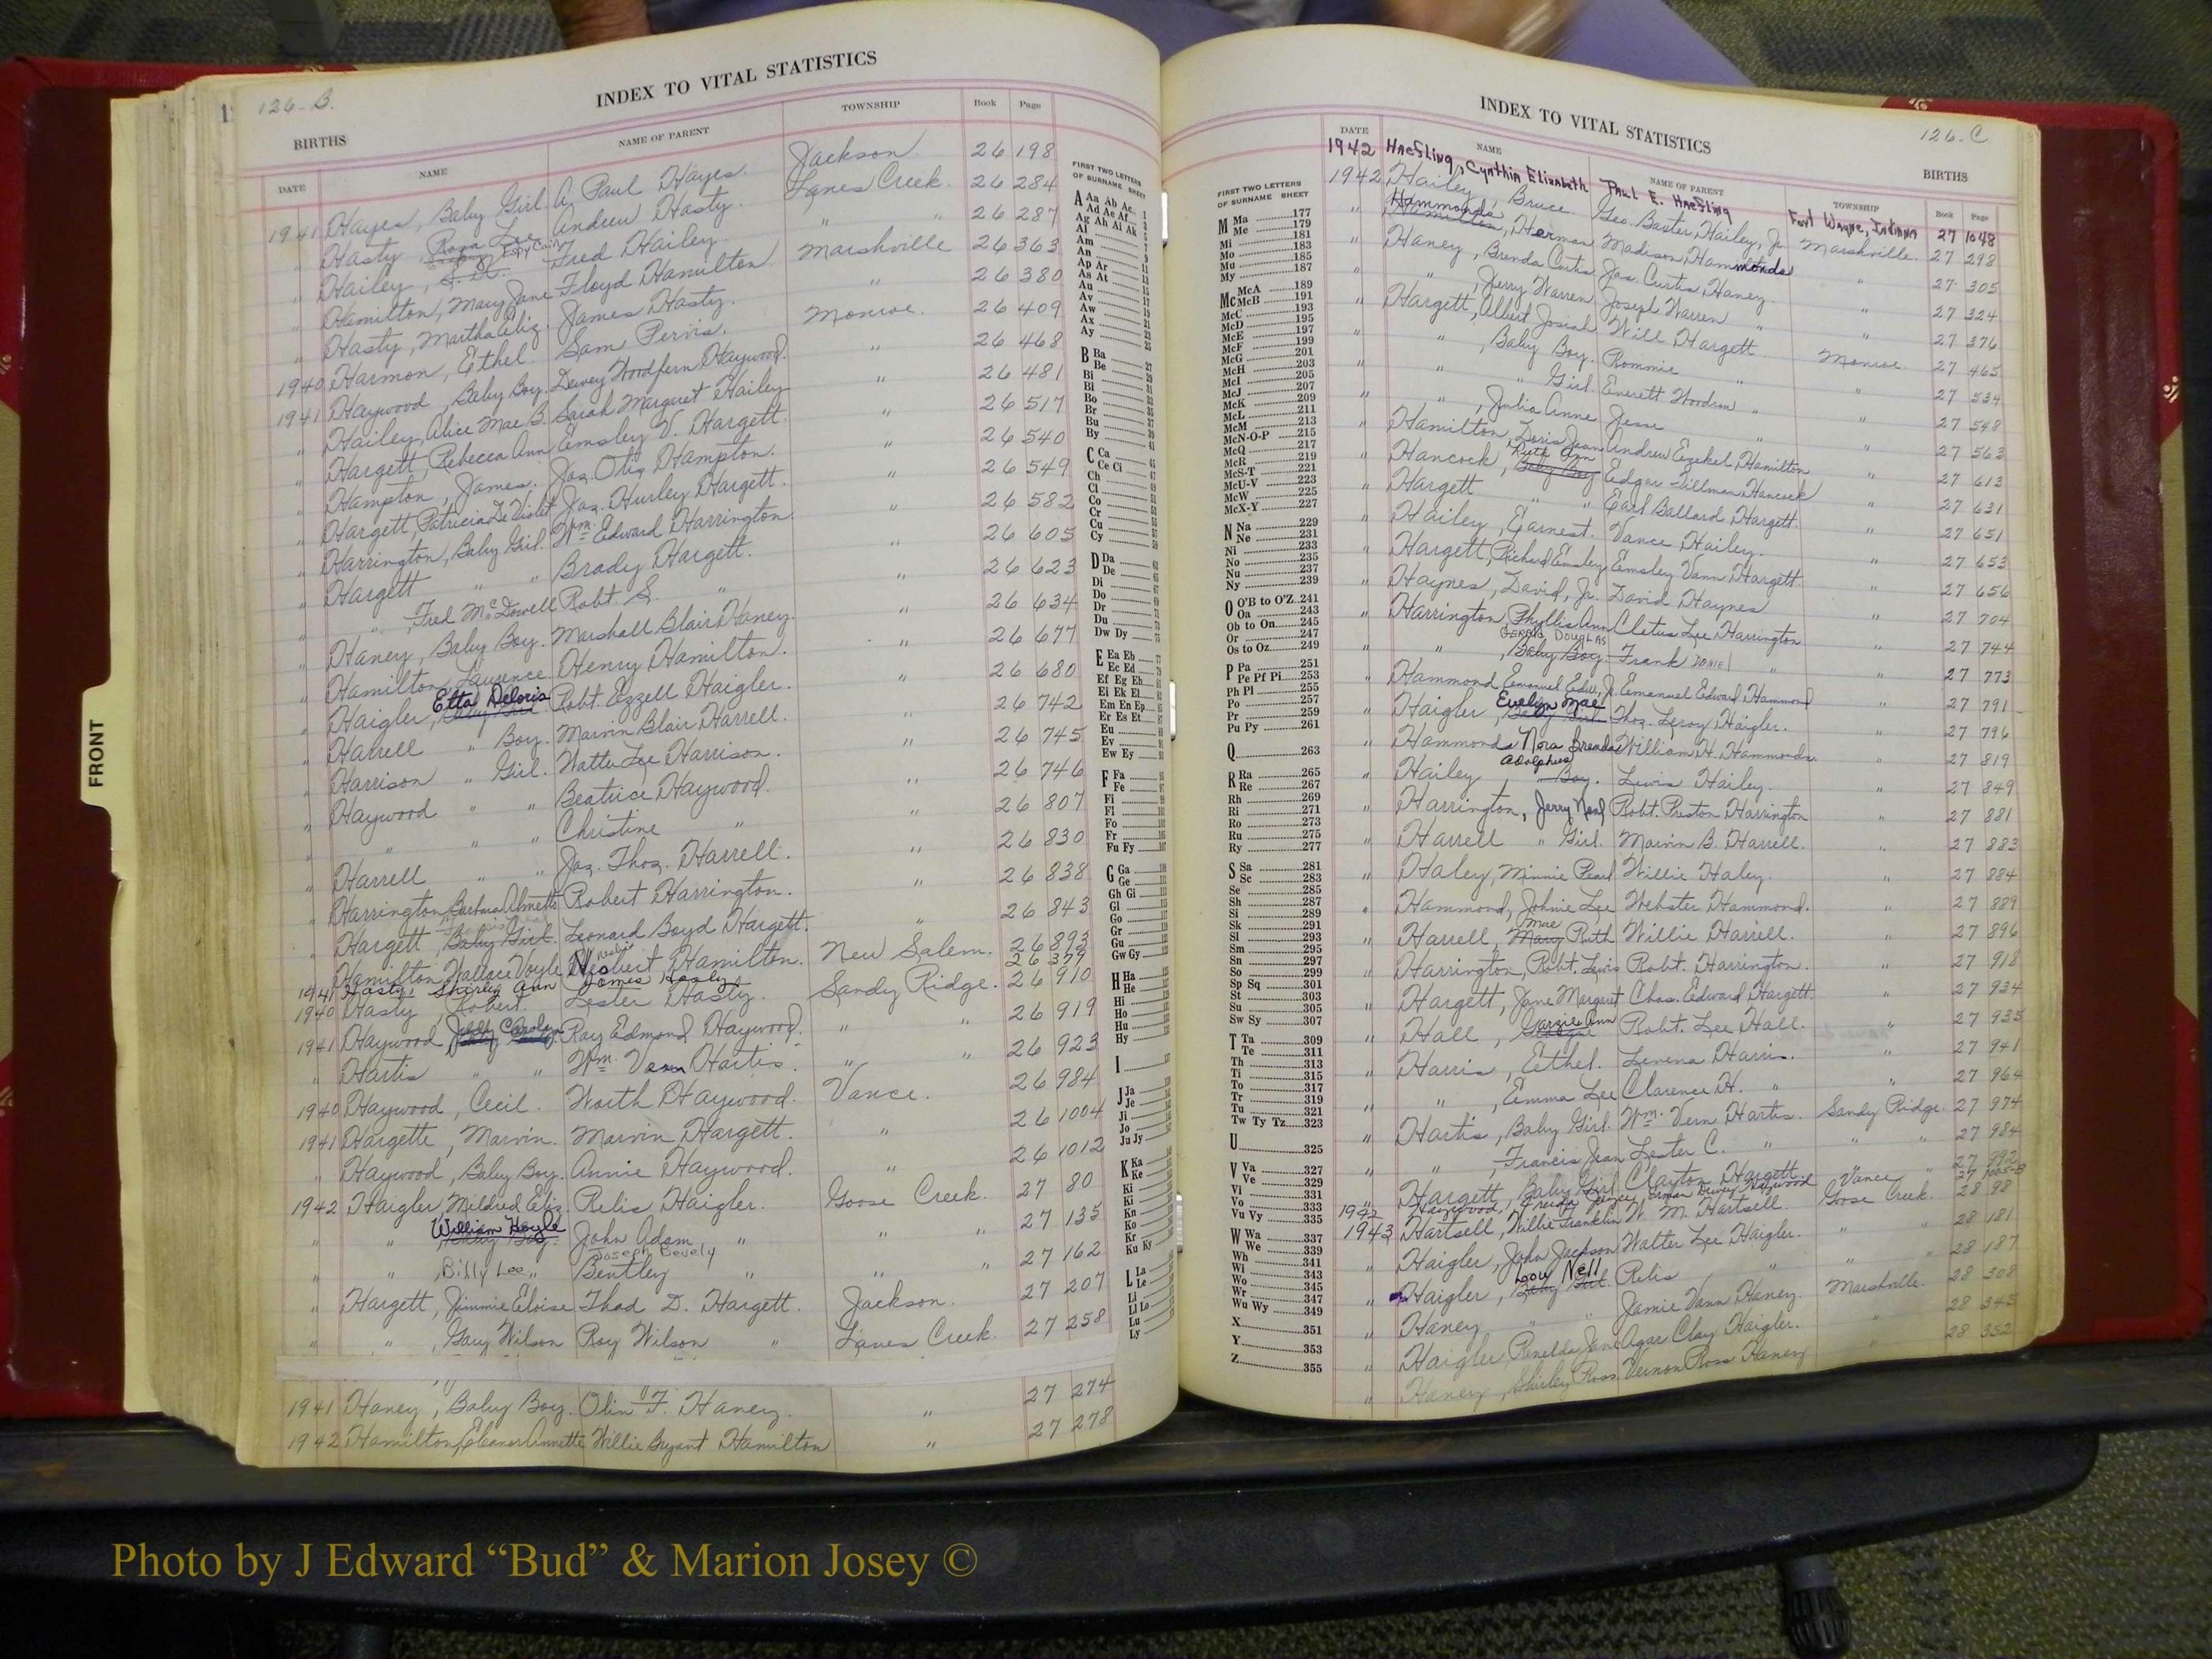 126-B.
INDEX TO VITAL STATISTICS
BIRTHS
DATE NAME NAME OF PARENT TOWNSHIP Book Page
1941 Hayes, Baby Girl. A. Paul Hayes. Jackson. 26 198
" Hasty, Rosa Lee Andrew Hasty. Lanes Creek. 26 284
" Hailey, Fred Hailey. " " 26 287
" Hamilton, Mary Jane Floyd Hamilton Marshville 26 363
" Hasty, Martha Eliz. James Hasty. " 26 380
1940 Harmon, Ethel. Sam Pervis. Monroe. 26 409
1941 Haywood, Baby Boy. Dewey Woodfern Haywood. " 26 468
" Hailey, Alice Mae B. Sarah Margaret Hailey " 26 481
" Hargett, Rebecca Ann Emsley V. Hargett. " 26 517
" Hampton, James. Jas. Otis Hampton. " 26 540
" Hargett, Patricia De Violet Jas. Hurley Hargett. " 26 549
" Harrington, Baby Girl. Wm. Edward Harrington. " 26 582
" Hargett " " Brady Hargett. " 26 605
" " , Fred McDowell Robt. S. " " 26 623
" Haney, Baby Boy. Marshall Blair Haney. " 26 634
" Hamilton, Laurence. Henry Hamilton. " 26 677
" Haigler, Etta Deloris Robt. Ezzell Haigler. " 26 680
" Harrell " Boy. Marvin Blair Harrell. " 26 742
" Harrison " Girl. Watter Lee Harrison. " 26 745
" Haywood " " Beatrice Haywood. " 26 746
" " " " Christine " " 26 807
" Harrell " " Jas. Thos. Harrell. " 26 830
" Harrington, Barbara Almetta Robert Harrington. " 26 838
" Hargett, Baby Girl. Leonard Boyd Hargett. " 26 843
Hamilton, Wallace Voyle Hamilton. New Salem. 26 893
1941 Hasty, Shirley Ann James Hasty 26 379
1940 Hasty, Robert. Lester Hasty. Sandy Ridge. 26 910
1941 Haywood, Carolyn Ray Edmond Haywood. " " 26 919
" Hartis " " Wm. Vern Hartis. " " 26 923
1940 Haywood, Cecil. Worth Haywood. Vance. 26 984
1941 Hargette, Marvin. Marvin Hargett. " 26 1004
" Haywood, Baby Boy. Annie Haywood. " 26 1012
1942 Haigler, Mildred Eliz. Relis Haigler. Goose Creek. 27 80
" " William Hoyle John Adam " " " 27 135
Joseph Bevely
" " , Billy Lee " Bentley " " " 27 162
" Hargett, Jimmie Eloise Thad D. Hargett. Jackson. 27 207
" " , Gary Wilson Roy Wilson " Lanes Creek. 27 258
1941 Haney, Baby Boy. Olin F. Haney. " 27 274
1942 Hamilton, Eleanor Annette Willie Bryant Hamilton " 27 278
FRONT
FIRST TWO LETTERS
OF SURNAME SHEET
A Aa Ab Ac
Ad Ae Af
Ag Ah Ai Ak
Al
Am
An
Ap Ar
As At
Au
Av
Aw
Ax
Ay
B Ba 27
Be
Bi
Bl
Bo
Br
Bu
By
C Ca
Ce Ci
Ch
Cl
Co
Cr
Cu
Cy
D Da
De
Di
Do
Dr
Du
Dw Dy
E Ea Eb
Ec Ed
Ef Eg Eh
Ei Ek El
Em En Ep
Er Es Et
Eu
Ev
Ew Ey
F Fa
Fe
Fi
Fl
Fo
Fr
Fu Fy
G Ga
Ge
Gh Gi
Gl
Go
Gr
Gu
Gw Gy
H Ha
He
Hi
Ho
Hu
Hy
I
J Ja
Je
Ji
Jo
Ju Jy
K Ka
Ke
Ki
Kl
Kn
Ko
Kr
Ku Ky
L La
Le
Li
Ll Lo
Lu
Ly
INDEX TO VITAL STATISTICS
126-C
BIRTHS
DATE NAME NAME OF PARENT TOWNSHIP Book Page
1942 Haefling, Cynthia Elizabeth Paul E. Haefling Fort Wayne, Indiana 27 1048
1942 Hailey, Bruce. Geo. Baxter Hailey, Jr. Marshville. 27 298
" Hammonds, Herman Madison Hammonds " 27 305
" Haney, Brenda Curtis Jas. Curtis Haney. " 27 324
" " , Jerry Warren Joseph Warren " " 27 376
" Hargett, Albert Josiah Will Hargett Monroe. 27 465
" " , Baby Boy. Rommie " " 27 534
" " " Girl. Everett Woodrow " " 27 548
" " , Julia Anne Jesse " " 27 563
" Hamilton, Doris Jean Andrew Ezekel Hamilton " 27 613
" Hancock, Ruth Ann Baby Boy Edgar Tillman Hancock " 27 631
" Hargett " " Earl Ballard Hargett. " 27 651
" Hailey, Earnest. Vance Hailey. " 27 653
" Hargett, Richard Emsley Emsley Vann Hargett. " 27 656
" Haynes, David, Jr. David Haynes " 27 704
" Harrington, Phyllis Ann Cletus Lee Harrington " 27 744
" " , Gerald Douglas Baby Boy. Frank " " 27 773
" Hammond, Emanuel Edw., Jr. Emanuel Edward Hammond " 27 791
" Haigler, Evelyn Mae Baby Girl Thos. Leroy Haigler. " 27 796
" Hammonds Nora Brenda William H. Hammonds. " 27 819
" Hailey Adolphus Boy. Lewis Hailey. " 27 849
" Harrington, Jerry Neal Robt. Preston Harrington " 27 881
" Harrell " Girl. Marvin B. Harrell. " 27 883
" Haley, Minnie Pearl Willie Haley. " 27 884
" Hammond, Johnie Lee Webster Hammond. " 27 889
" Harrell, Mae Mary Ruth Willie Harrell. " 27 896
" Harrington, Robt. Lewis Robt. Harrington. " 27 918
" Hargett, Jane Margaret Chas. Edward Hargett. " 27 934
" Hall, Ann Robt. Lee Hall. " 27 935
" Harris, Ethel. Levena Harris. " 27 941
" " , Emma Lee Clarence H. " " 27 964
" Hartis, Baby Girl. Wm. Vern Hartis. Sandy Ridge. 27 974
" " , Francis Jean Lester C. " " " 27 984
" Hargett, Baby Girl Clayton Hargett. Vance 27 992
1942 Haywood, Freida Erman Dewey Haywood " 27 1005-B
1943 Hartsell, Willie Franklin W. M. Hartsell. Goose Creek. 28 98
" Haigler, John Jackson Walter Lee Haigler. " " 28 181
" Haigler, Lou Nell Baby Girl. Relis " " " 28 187
" Haney " " Jamie Vann Haney. Marshville. 28 308
" Haigler, Renelda Jane Agar Clay Haigler. " 28 345
" Haney, Shirley Ross. Vernon Ross Haney " 28 352
FIRST TWO LETTERS
OF SURNAME SHEET
M Ma 177
Me 179
Mi 181
Mo 183
Mu 185
My 187
Mc McA 189
McB 191
McC 193
McD 195
McE 197
McF 199
McG 201
McH 203
McI 205
McJ 207
McK 209
McL 211
McM 213
McN-O-P 215
McQ 217
McR 219
McS-T 221
McU-V 223
McW 225
McX-Y 227
N Na 229
Ne 231
Ni 233
No 235
Nu 237
Ny 239
O O'B to O'Z 241
Oa 243
Ob to On 245
Or 247
Os to Oz 249
P Pa 251
Pe Pf Pi 253
Ph Pl 255
Po 257
Pr 259
Pu Py 261
Q 263
R Ra 265
Re 267
Rh 269
Ri 271
Ro 273
Ru 275
Ry 277
S Sa 281
Sc 283
Se 285
Sh 287
Si 289
Sk 291
Sl 293
Sm 295
Sn 297
So 299
Sp Sq 301
St 303
Su 305
Sw Sy 307
T Ta 309
Te 311
Th 313
Ti 315
To 317
Tr 319
Tu 321
Tw Ty Tz 323
U 325
V Va 327
Ve 329
Vi 331
Vo 333
Vu Vy 335
W Wa 337
We 339
Wh 341
Wi 343
Wo 345
Wr 347
Wu Wy 349
X 351
Y 353
Z 355
Photo by J Edward “Bud” & Marion Josey ©